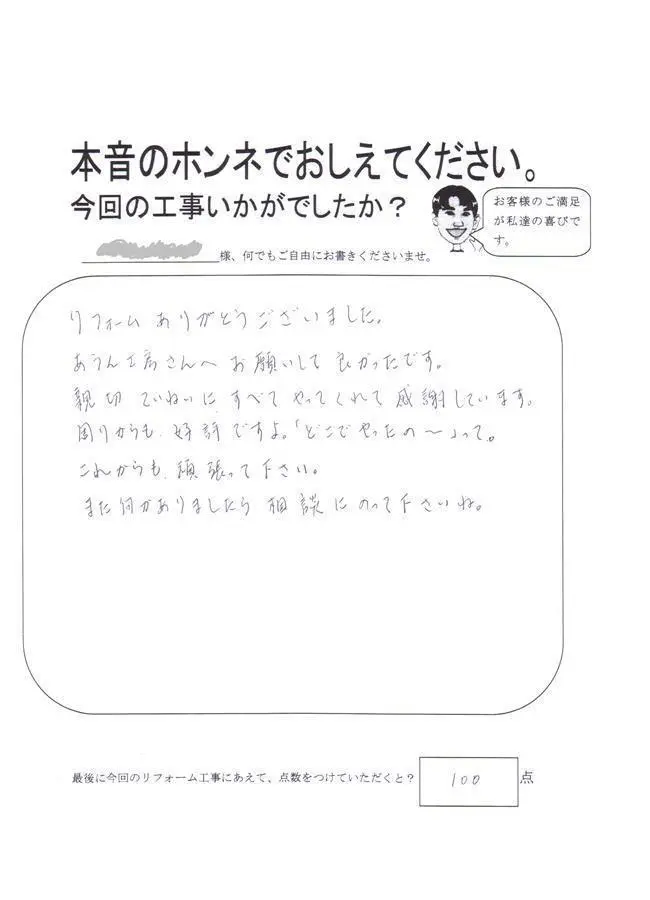 本音のホンネでおしえてください。
今回の工事いかがでしたか？
お客様のご満足
が私達の喜びで
す。
様、何でもご自由にお書きくださいませ。
リフォームありがとうございました。
あうん工房さんへお願いして良かったです。
親切ていねいにすべてやってくれて感謝しています。
周りからも、好評ですよ。「どこでやったの〜」って。
これからも、頑張って下さい。
また何かありましたら相談にのって下さいね。
最後に今回のリフォーム工事にあえて、点数をつけていただくと？
100 点